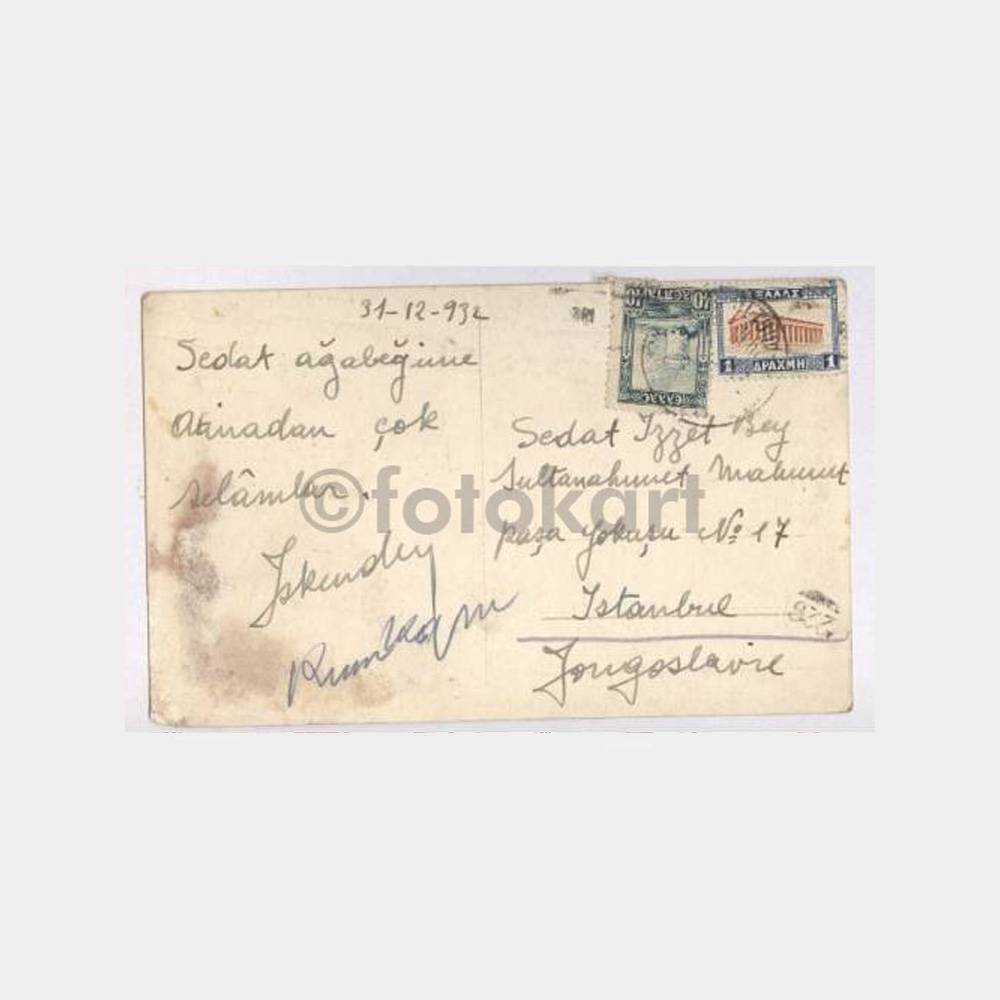 31-12-932
Sedat ağabeğime
Atinadan çok
selâmlar.
İskender
Sedat İzzet Bey
Sultanahmet Mahmut
paşa yokuşu No 17
Istanbul
Jougoslavie
ΕΛΛΑΣ
1 ΔΡΑΧΜΗ 1
ΕΛΛΑΣ
10 ΛΕΠΤΑ 10
©fotokart